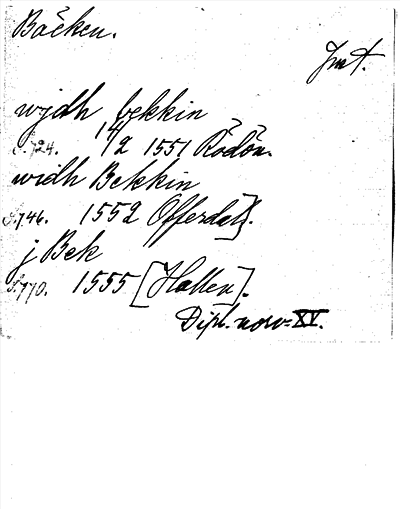 Bäcken.
Jmt.
wjdh bekkin
S.724. 14/2 1551 Rödön.
widh Bekkin
S.746. 1552 Offerdal].
j Bek
S.770. 1555 [Hallen].
Dipl. norv. XV.